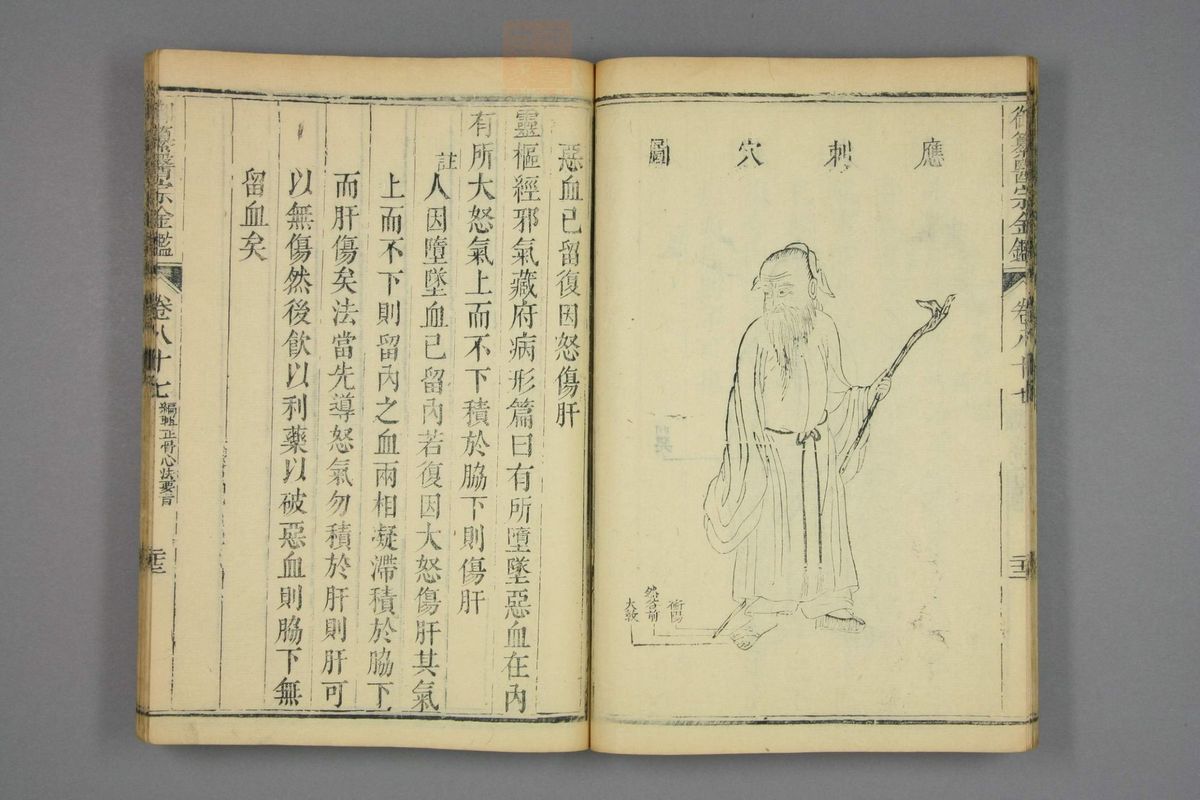 御纂醫宗金鑑
卷八十七
應刺穴圖
衝陽
然谷前
大敦
惡血已留復因怒傷肝
靈樞經邪氣藏府病形篇曰有所墮墜惡血在內
有所大怒氣上而不下積於脇下則傷肝
註人因墮墜血已留內若復因大怒傷肝其氣
上而不下則留內之血兩相凝滯積於脇下
而肝傷矣法當先導怒氣勿積於肝則肝可
以無傷然後飲以利藥以破惡血則脇下無
留血矣
御纂醫宗金鑑
卷八十七
編輯正骨心法要旨